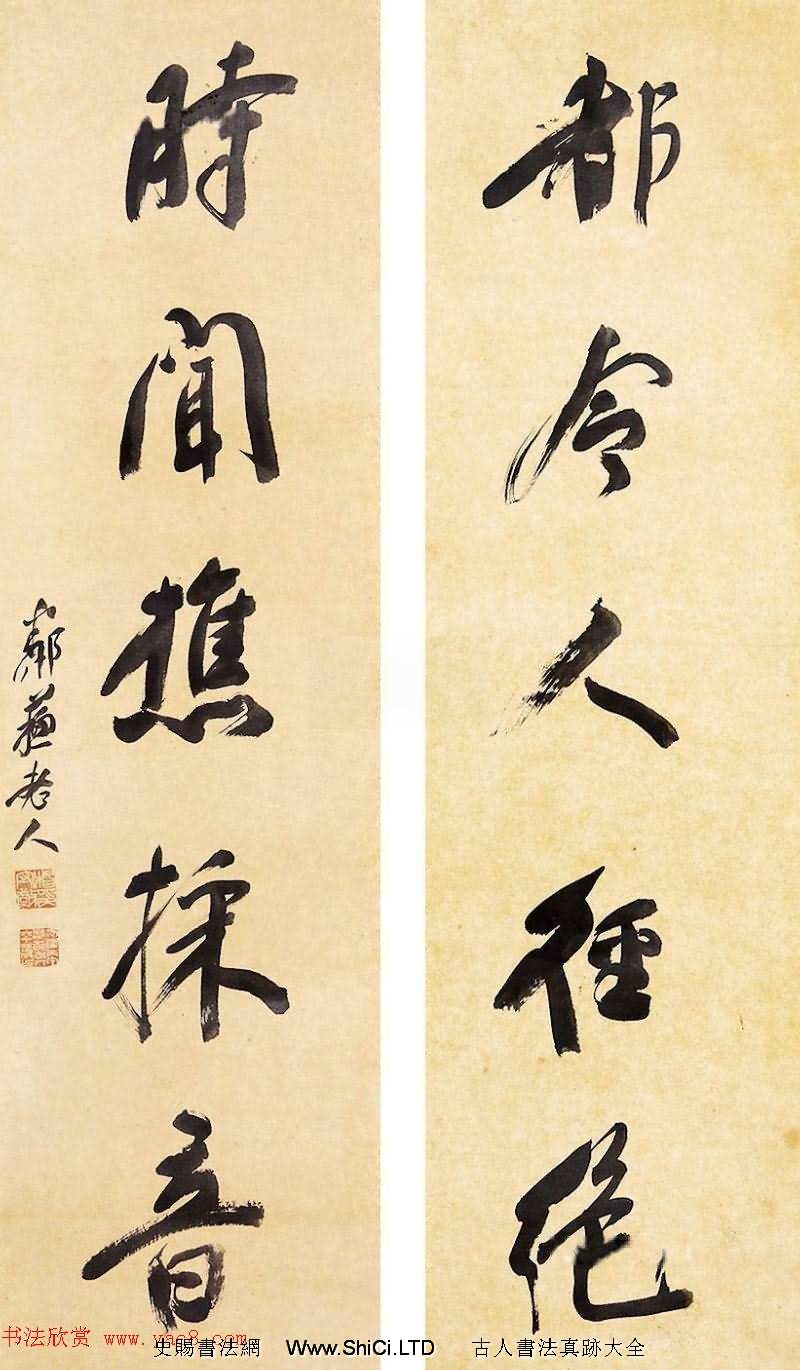 都令人徑絕
時聞樵採音
鄰蘇老人
书法欣赏 www.yac8.com
史賜書法網 Www.ShiCi.LTD 古人書法真跡大全